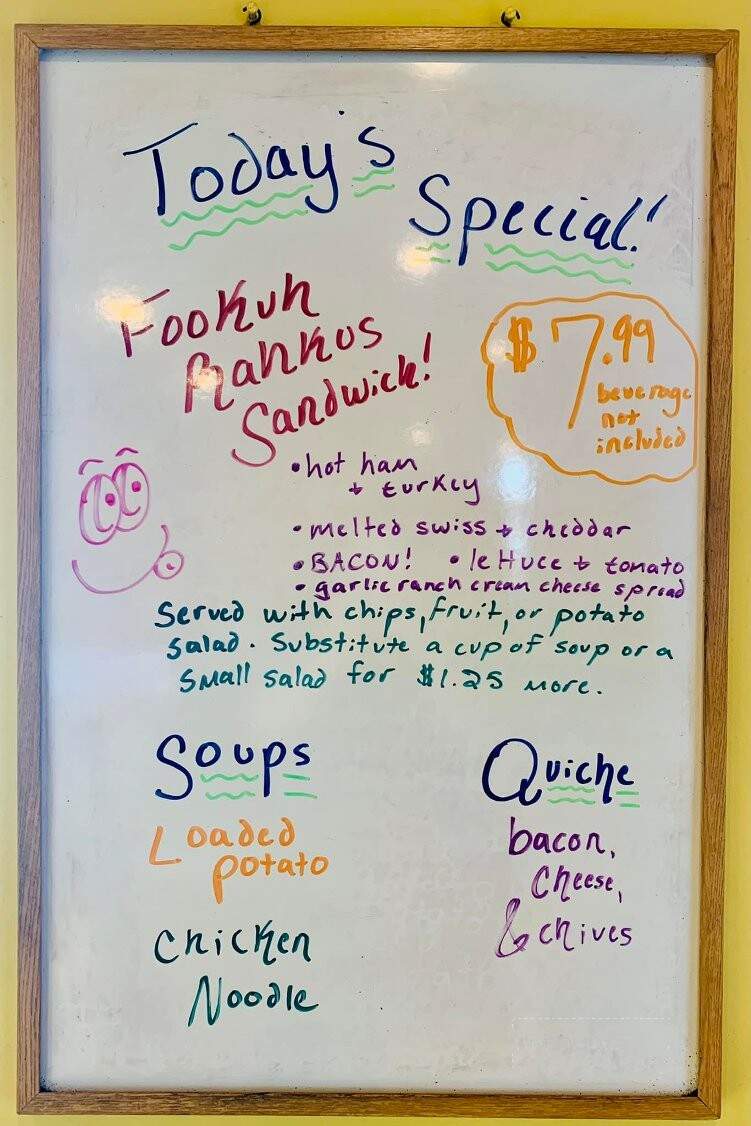 Today's
Special!
Fookuh
Rahkus
Sandwich!
$7.99
beverage
not
included
• hot ham
+ turkey
• melted swiss + cheddar
• BACON! • lettuce + tomato
• garlic ranch cream cheese spread
Served with chips, fruit, or potato
salad. Substitute a cup of soup or a
small salad for $1.25 more.
Soups
Loaded
potato
Chicken
Noodle
Quiche
bacon,
cheese,
& chives